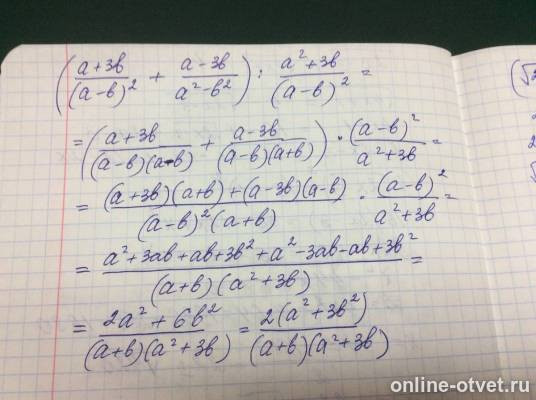 ( (a+3b)/(a-b)² + (a-3b)/(a²-b²) ) : (a²+3b)/(a-b)² =
= ( (a+3b)/((a-b)(a-b)) + (a-3b)/((a-b)(a+b)) ) · (a-b)²/(a²+3b) =
= ((a+3b)(a+b)+(a-3b)(a-b))/((a-b)²(a+b)) · (a-b)²/(a²+3b) =
= (a²+3ab+ab+3b²+a²-3ab-ab+3b²)/((a+b)(a²+3b)) =
= (2a²+6b²)/((a+b)(a²+3b)) = 2(a²+3b²)/((a+b)(a²+3b))
online-otvet.ru